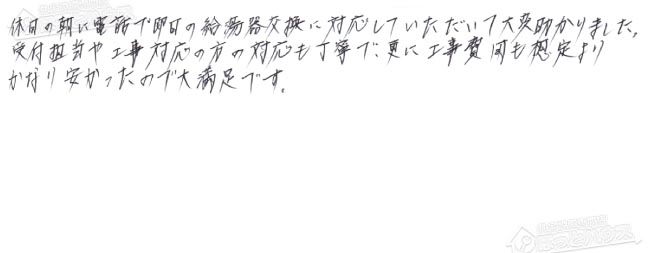 休日の朝に電話で即日の給湯器交換に対応していただいて大変助かりました。
受付担当や工事対応の方の対応も丁寧で、更に工事費用も想定より
かなり安かったので大満足です。